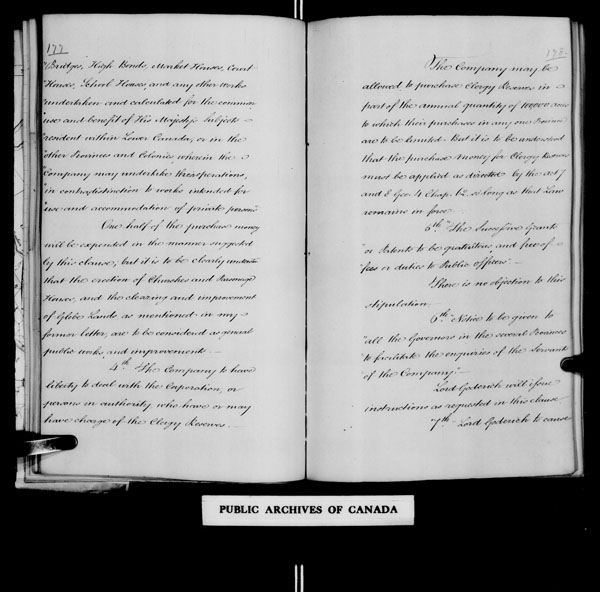 177
"Bridges, High Roads, Market Houses, Court
"Houses, School Houses, and any other works
"undertaken and calculated for the common
"use and benefit of His Majesty's Subjects
"resident within Lower Canada, or in the
"other Provinces and Colonies wherein the
"Company may undertake their operations,
"in contradistinction to works intended for
"use and accommodation of private persons"
One half of the purchase money
will be expended in the manner suggested
by this clause, but it is to be clearly understood
that the erection of Churches and Parsonage
Houses, and the clearing and improvement
of Glebe Lands as mentioned in my
former letter, are to be considered as general
public works, and improvements.
4th The Company to have
liberty to deal with the Corporation, or
persons in authority who have or may
have charge of the Clergy Reserves.
178.
The Company may be
allowed to purchase Clergy Reserves in
part of the annual quantity of 100000 acres
to which their purchases in any one Province
are to be limited. But it is to be understood
that the purchase money for Clergy Reserves
must be applied as directed by the act 7
and 8 Geo. 4 Chap. 62. so long as that Law
remains in force.
5th "The Successive Grants
"or Patents to be gratuitous and free of
"fees or duties to Public Officers".
There is no objection to this
stipulation.
6th "Notice to be given to
"all the Governors in the several Provinces
"to facilitate the enquiries of the Servants
"of the Company."
Lord Goderich will issue
instructions as requested in this clause.
7th Lord Goderich to cause
PUBLIC ARCHIVES OF CANADA